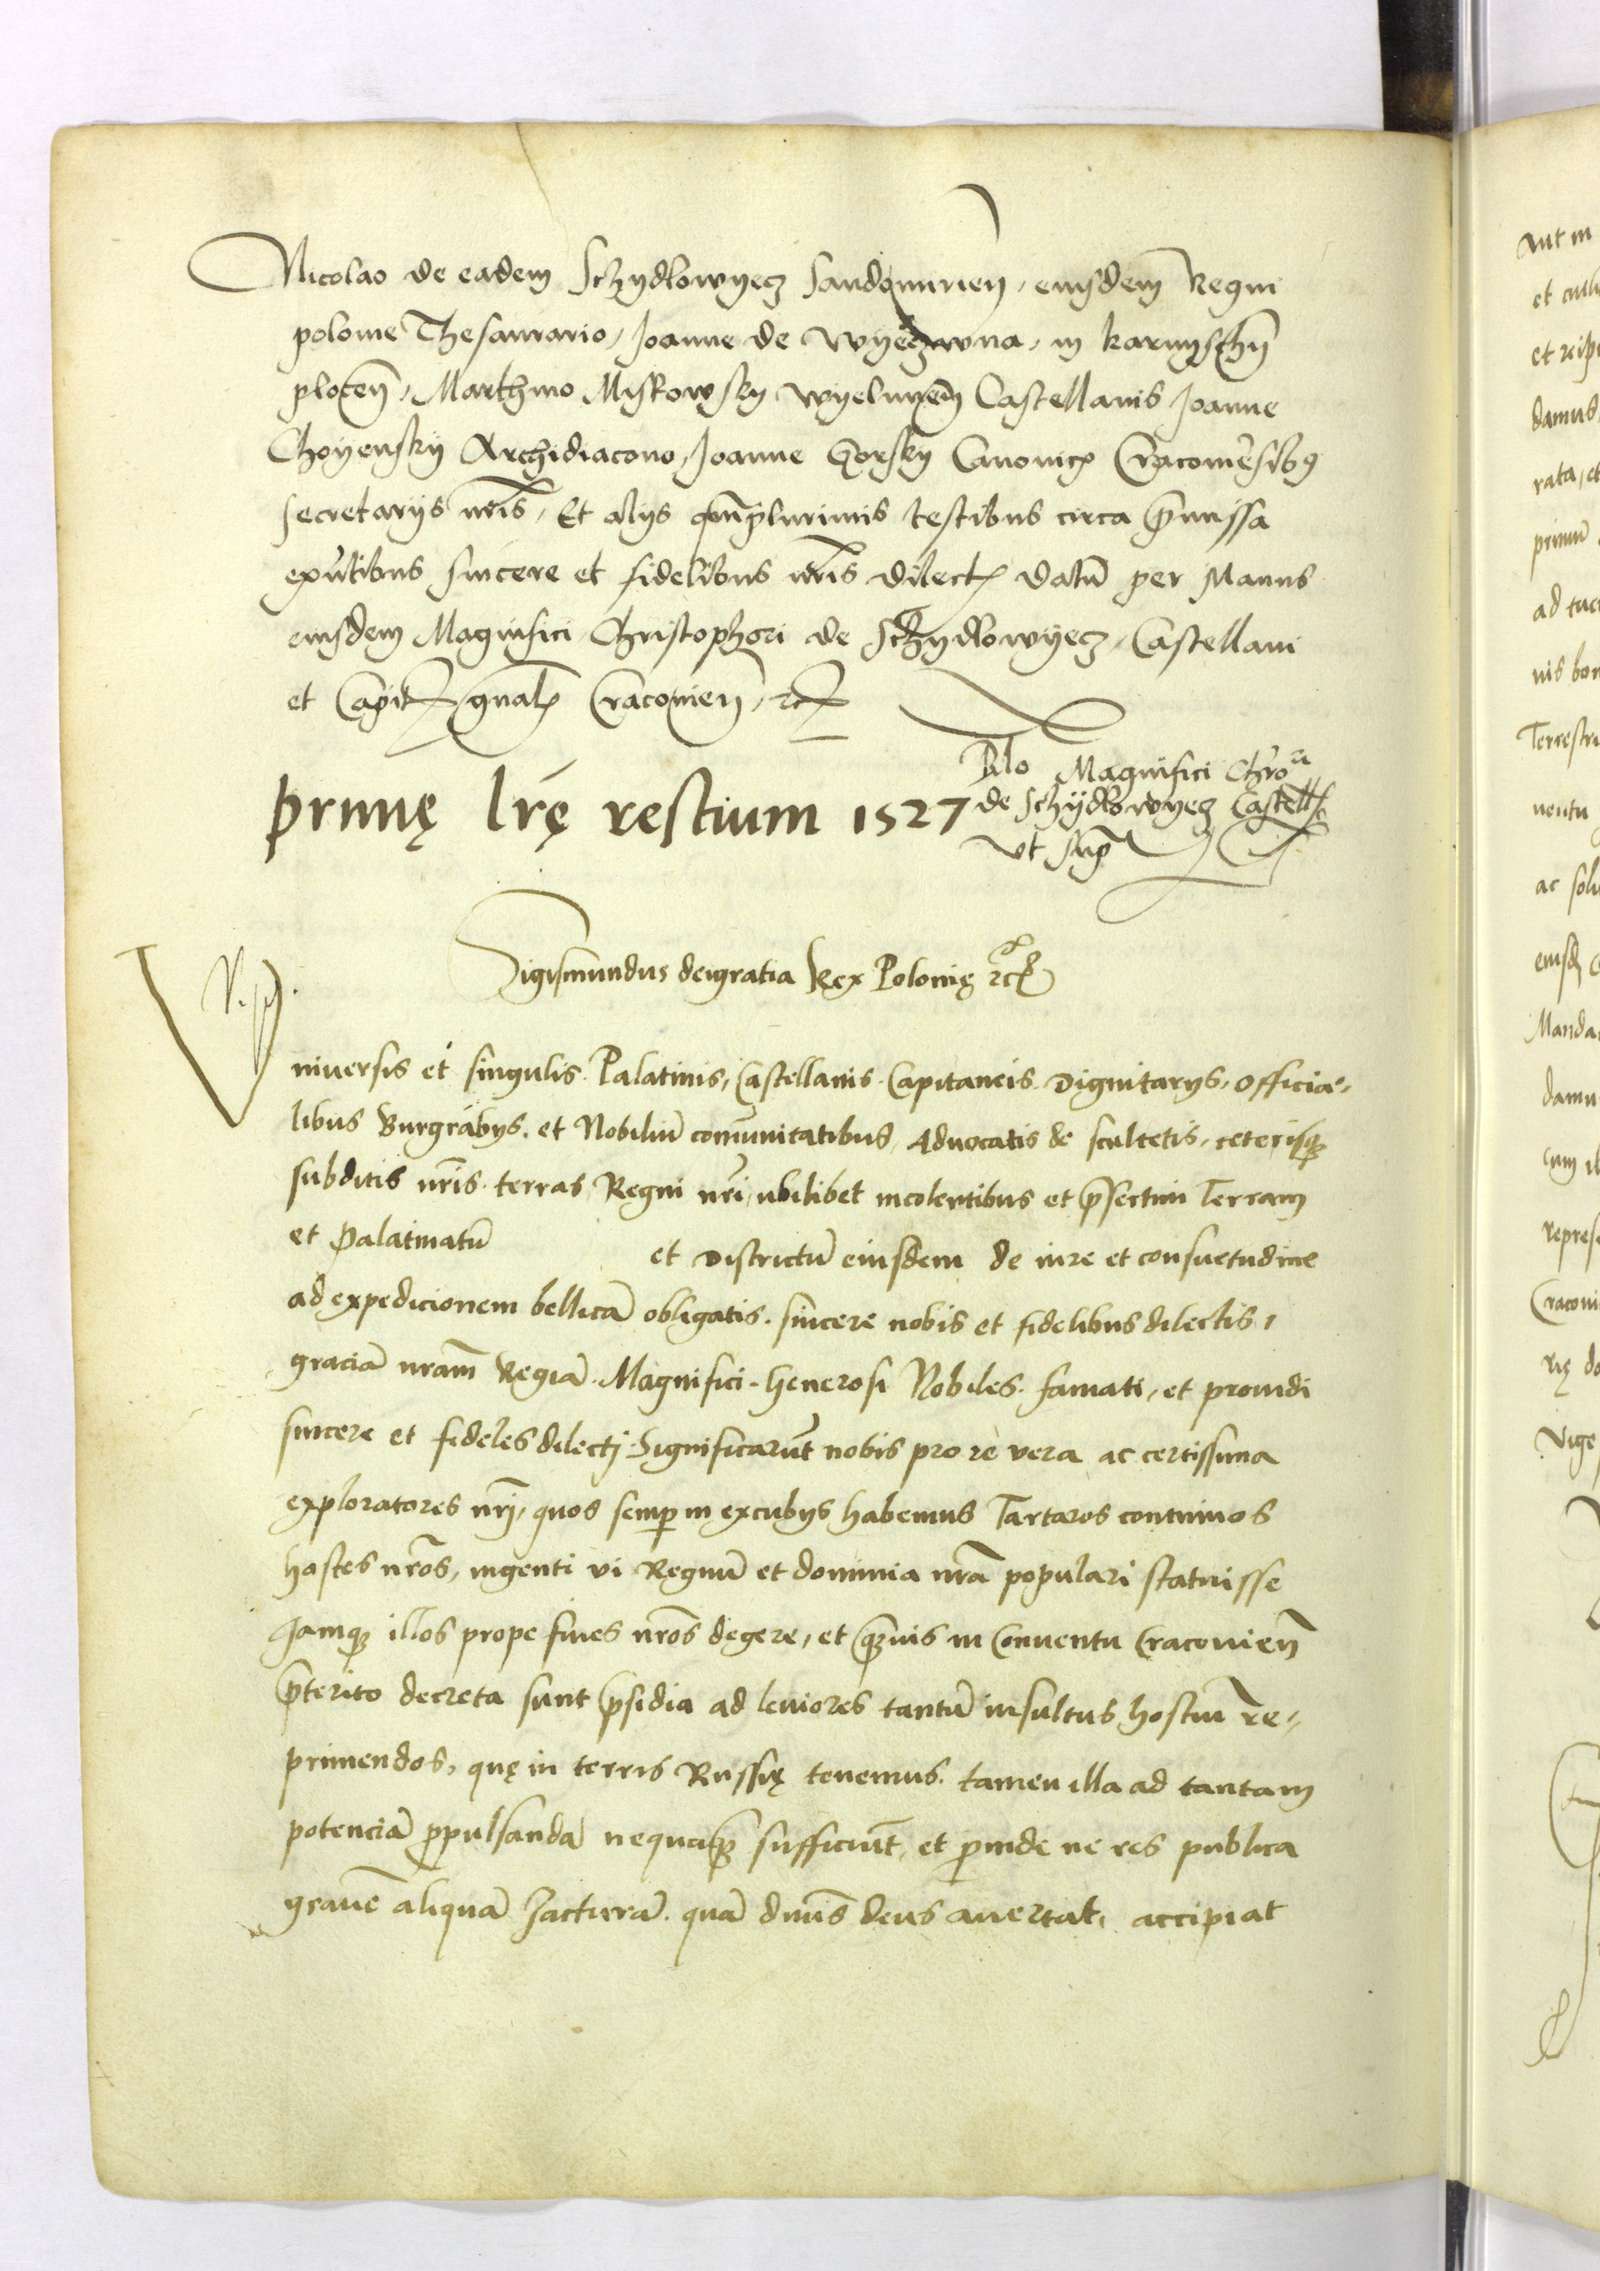 Nicolao de eadem Schydlowyecz Sandomirien, eiusdem Regni
polonie Thesaurario, Joanne de wyeczwna, in karnyschyn̄
plocen̄, Marthino Myskowsky wyelunen̄ Castellanis Joanne
Choyensky Archidiacono, Joanne Gorsky Canonico Cracouiēsibꝰ
secretarijs nr̄is, Et alijs qᵘamplurimis testibus circa p̄missa
exn̄tibus sincere et fidelibus nr̄is dilectꝭ datū per Manus
eiusdem Magnifici Christophori de Schydlowyecz, Castellani
et Capitꝭ gn̄alꝭ Cracouien̄, ꝛcꝭ
Rlo Magnifici Chrōri
de Schÿdlowyecz Castellꝭ
vt sup̄
primę lrę restium 1527
Sigismundus deigratia Rex Polonię ꝛcꝭ
Vniuersis et singulis Palatinis, Castellanis Capitaneis Dignitarijs, Officia-
libus Burgrabijs, et Nobiliū com̄unitatibus, Aduocatis de scultetis, ceterisqꝫ
subditis nr̄is terras Regni nr̄i, ubilibet incolentibus et p̄sertim Terram
et Palatinatū et Districtū eiusdem de iure et consuetudine
ad expedicionem bellicā obligatis. sincere nobis et fidelibus dilectis,
graciā nram̄ Regiā. Magnifici. Generosi Nobiles. famati, et prouidi
sincere et fideles dilectj. Significarūt nobis pro re vera ac certissima
exploratores nr̄j, quos semp̱ in excubijs habemus Tartaros continuos
hostes nr̄os, ingenti vi Regnū et dominia nr̄a populari statuisse
Jamqꝫ illos prope fines nr̄os degere, et qꝫuis in Conuentu Cracouien̄
p̄terito decreta sunt p̄sidia ad leuiores tantū insultus hostiū re-
primendos, quę in terris Russię tenemus. tamen illa ad tantam
potenciā p̱pulsandā nequaqꝫ sufficiūt, et p̱inde ne res publica
grauē aliquā Jacturā. quā dn̄us deus auertat, accipiat